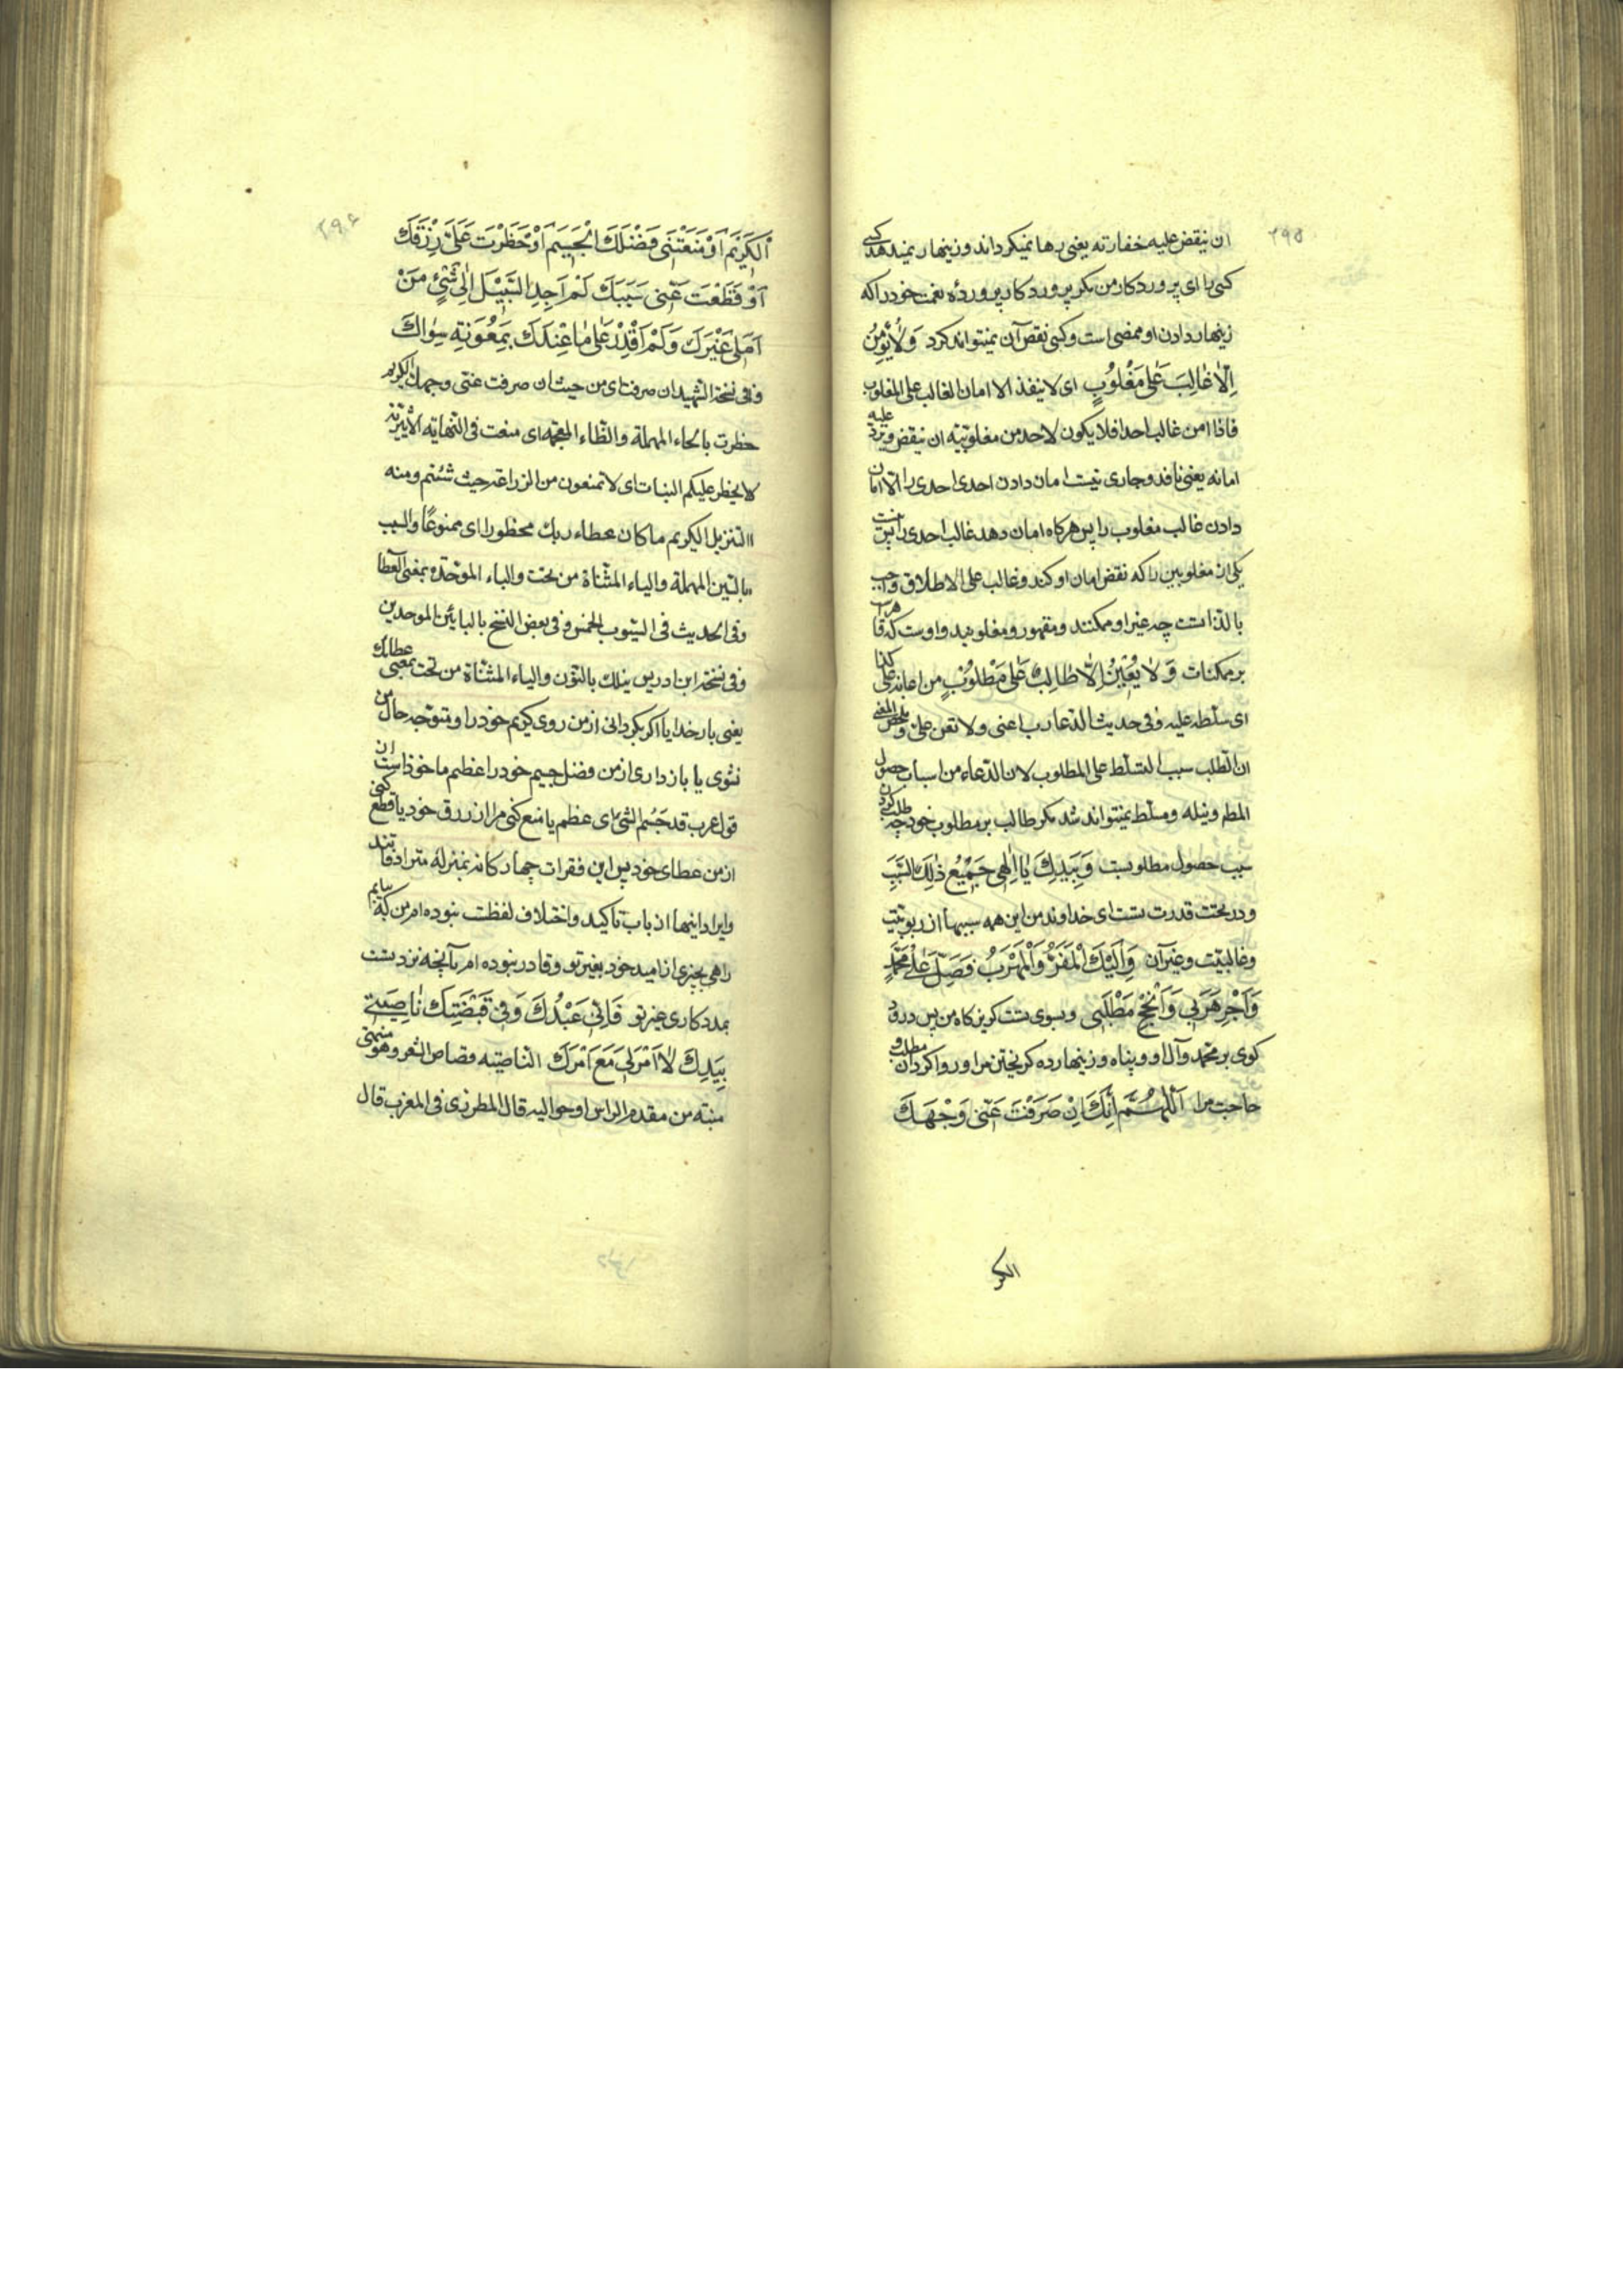 ۲۹۵
ان ینقض علیه خفارته یعنی رها نمیکرداند و زینهار نمیدهد کسی
کسی را ای پروردکار من مکر پروردکار پروردهٔ نعمت خود را که
زینهار دادن او ممضی است و کسی نقض آن نمیتواند کرد وَلاٰ یُؤْمِنُ
اِلّاٰ غٰالِبٌ عَلیٰ مَغْلُوبٍ ای لا ینفذ الا امان الغالب علی المغلوب
فاذا امن غالب احدا فلا یکون لاحد من مغلوبیه ان ینقض و یرد علیه
امانه یعنی نافذ و جاری نیست امان دادن احدی احدی را الا امان
دادن غالب مغلوب را پس هرکاه امان دهد غالب احدی را نیست
یکی از مغلوبین را که نقض امان او کند و غالب علی الاطلاق واجب
بالذاتست چه غیر او ممکنند و مقهور و مغلوبند و اوست که قاهر
بر ممکنات وَلاٰ یُعینُ اِلّاٰ طٰالِبٌ عَلیٰ مَطْلُوبٍ من اعانه علی کذا
ای سلطه علیه و فی حدیث الدعا رب اعنی ولا تعن علی و ملخص المعنی
ان الطلب سبب التسلط علی المطلوب لان الدعاء من اسباب حصول
المطم و نیله و مسلط نمیتواند شد مکر طالب بر مطلوب خود چه طلب کردن
سبب حصول مطلوبست وَبِیَدِكَ یٰا اِلٰهی جَمیعُ ذٰلِكَ السَّبَبِ
و در تحت قدرت تست ای خداوند من این همه سببها از ربوبیت
و غالبیت و غیر آن وَاِلَیْكَ الْمَفَرُّ وَالْمَهْرَبُ فَصَلِّ عَلیٰ مُحَمَّدٍ
وَاَجِرْ هَرَبی وَاَنْجِحْ مَطْلَبی و بسوی تست کریزکاه من پس درود
کوی بر محمد و آل او و پناه و زینهار ده کریختن مرا و روا کردان مطلب و
حاجت مرا اَللّٰهُمَّ اِنَّكَ اِنْ صَرَفْتَ عَنّی وَجْهَكَ
الکر
۲۹۶
اَلْكَریمَ اَوْ مَنَعْتَنی فَضْلَكَ الْجَسیمَ اَوْ حَظَرْتَ عَلَیَّ رِزْقَكَ
اَوْ قَطَعْتَ عَنّی سَبَبَكَ لَمْ اَجِدِ السَّبیلَ اِلیٰ شَیْءٍ مِنْ
اَمَلی غَیْرَكَ وَلَمْ اَقْدِرْ عَلیٰ مٰا عِنْدَكَ بِمَعُونَةِ سِوٰاكَ
و فی نسخة الشهید ان صرفت ای من حیث ان صرفت عنی وجهك الکریم
حظرت بالحاء المهملة والظاء المعجمه ای منعت فی النهایه الاثیریه
لا یحظر علیکم النبات ای لا تمنعون من الزراعة حیث شئتم و منه
التنزیل الکریم ما کان عطاء ربك محظورا ای ممنوعًا والسیب
بالسین المهملة والیاء المثناة من تحت والباء الموحدة بمعنی العطا
و فی الحدیث فی السیوب الخمس و فی بعض النسخ بالبائین الموحدین
و فی نسخة ابن ادریس نیلك بالنون والیاء المثناة من تحت بمعنی عطائك
یعنی بار خدایا اکر بکردانی از من روی کریم خود را و متوجه حال من
نشوی یا بازداری از من فضل جسیم خود را عظیم ماخوذ است از
قول عرب قد جَسُم الشئ ای عظم یا منع کنی مرا از رزق خود یا قطع کنی
از من عطای خود پس این فقرات چهارکانه بمنزله مترادفاتند
و ایراد اینها از باب تاکید و اختلاف لفظست نبوده ام من که بیابم
راهی بچیزی از امید خود بغیر تو و قادر نبوده ام بآنچه نزد تست
بمددکاری غیر تو فَاِنّی عَبْدُكَ وَفی قَبْضَتِكَ نٰاصِیَتی
بِیَدِكَ لٰا اَمْرَ لی مَعَ اَمْرِكَ الناصیه قصاص الشعر و هو منتهی
منبته من مقدم الراس او حوالیه قال المطرزی فی المغرب قال